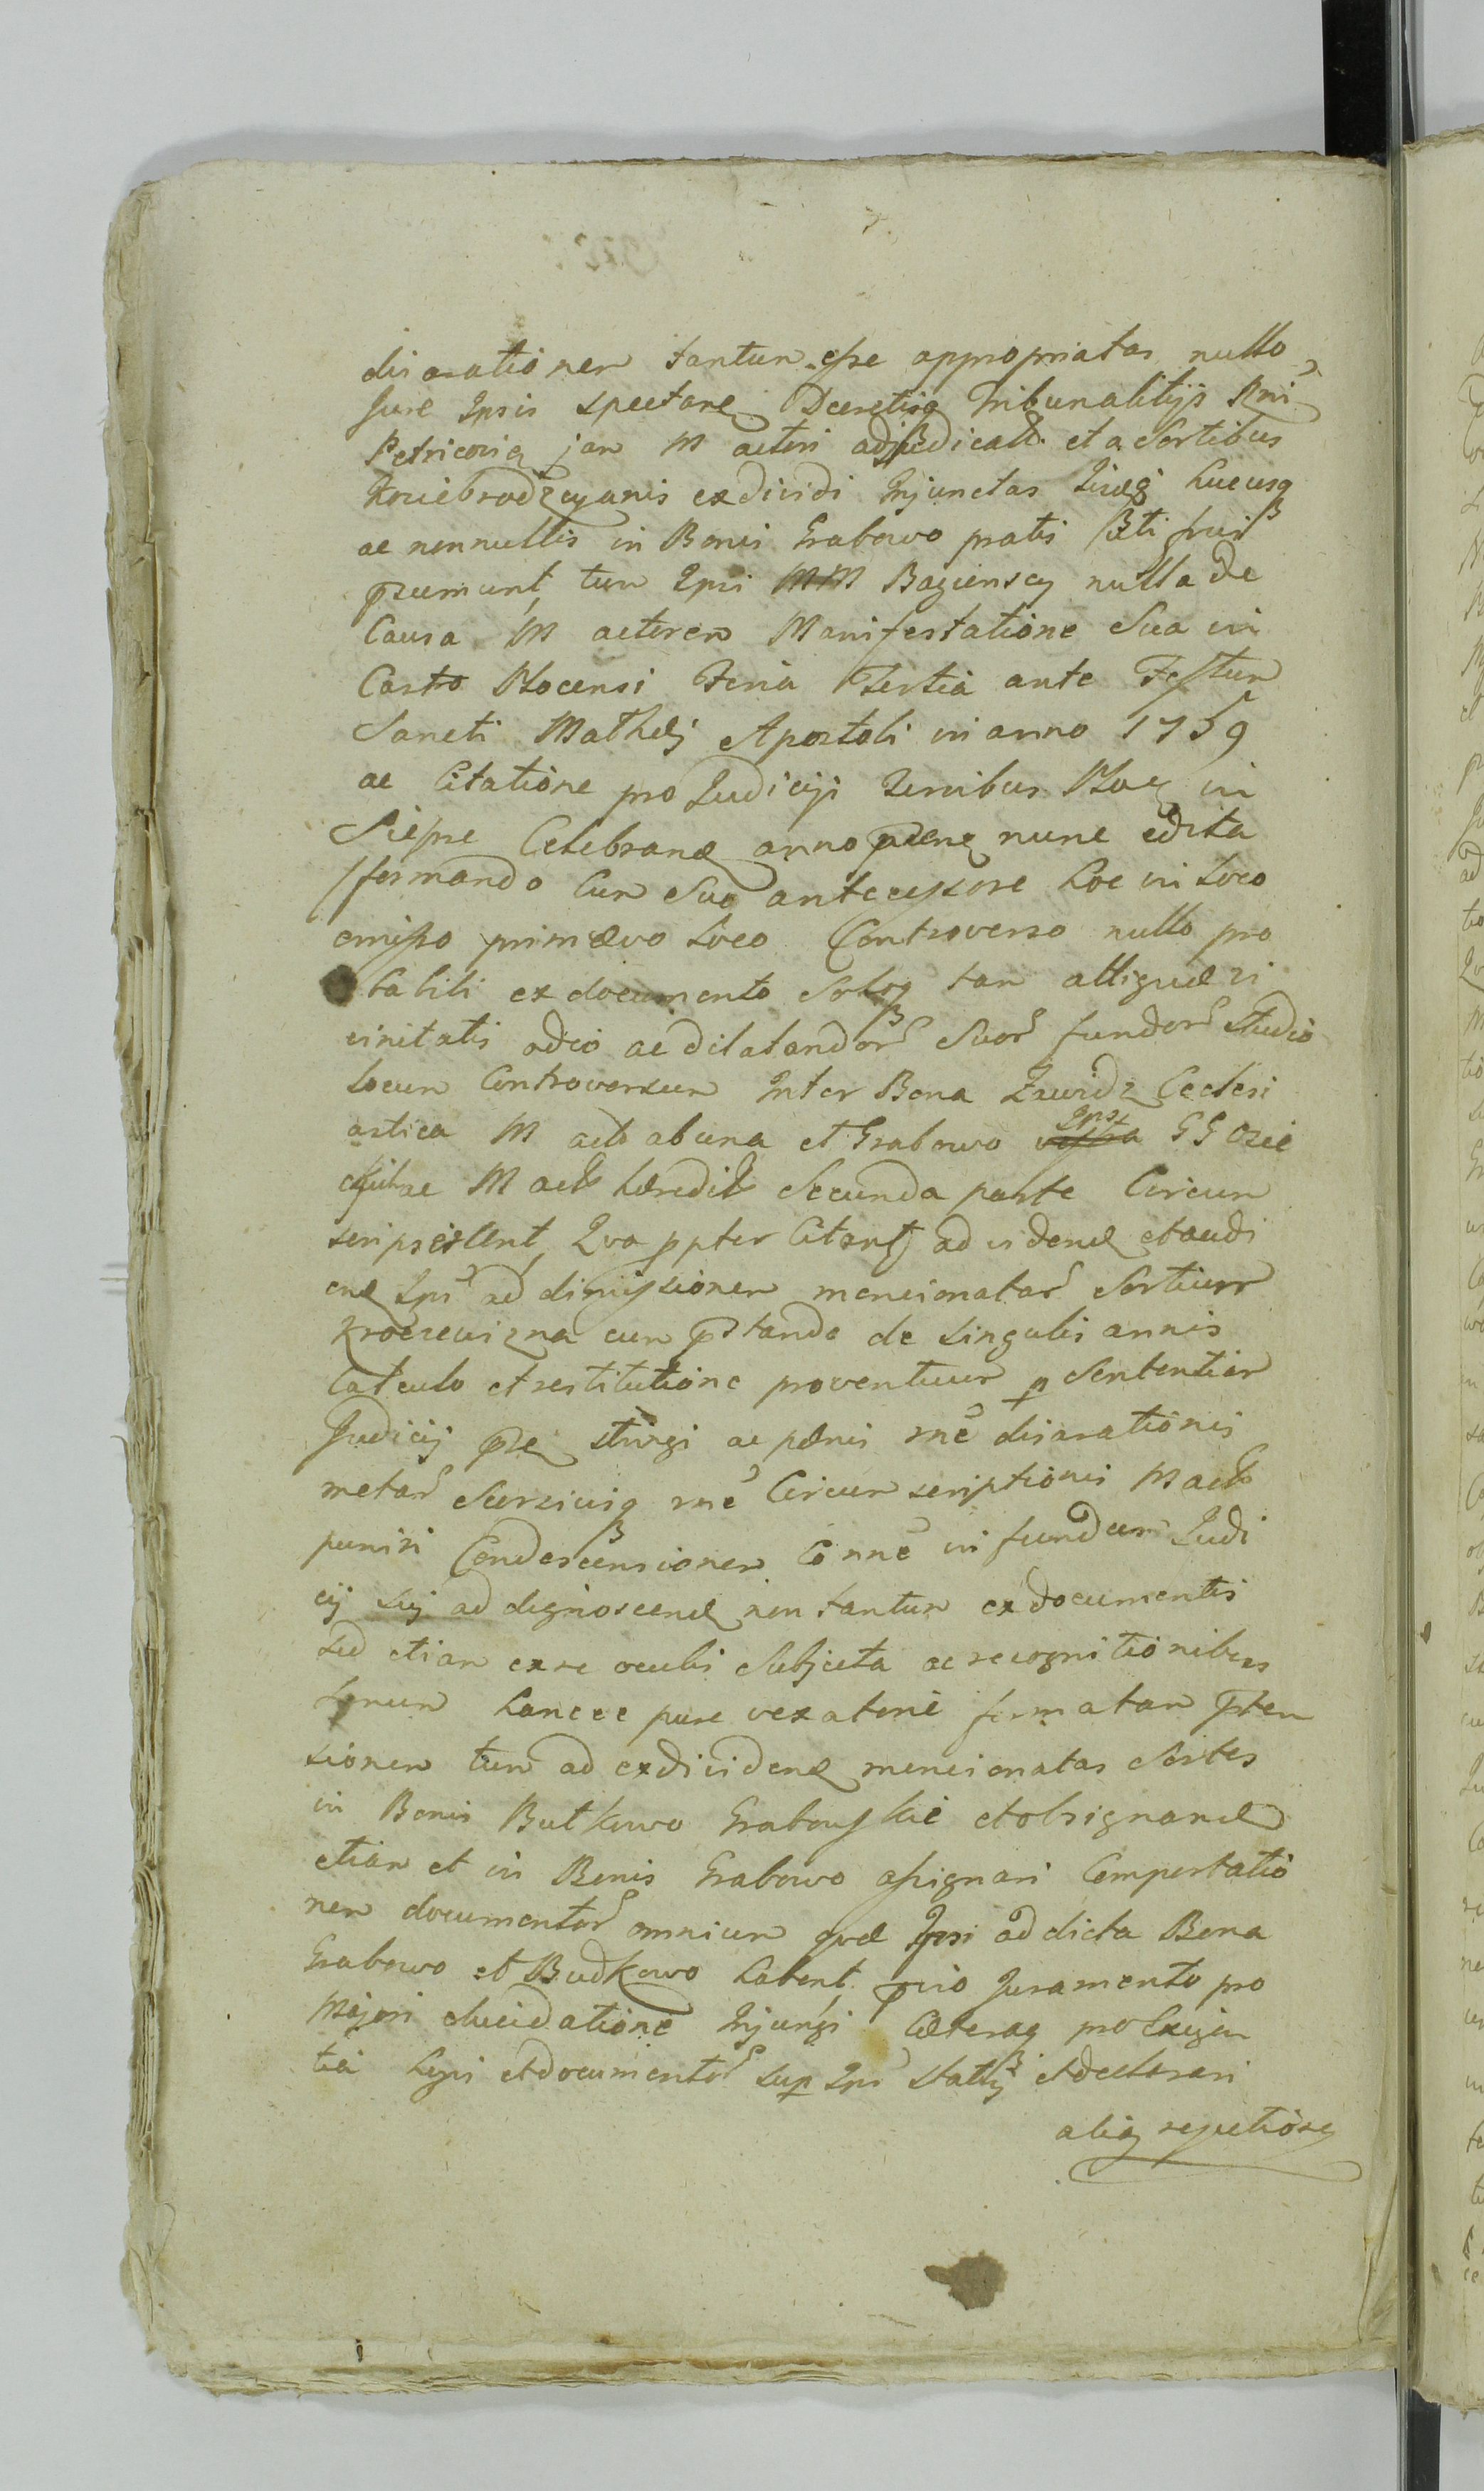 disarationem tantum esse appropriatas nullo
Jure Ipsis spectare Decretisq Tribunalitijs Rni
Petricoviae jam M actori adjudicatas et a Sortibus
Kniebrodzcyanis exdividi Injunctas hucusq
ac nonnullis in Bonis Grabowo pratis uti frui
praesumunt, tum Ipsi MM Bagienscy nulla de
Causa M actorem Manifestatione Sua in
Castro Plocensi Feria Tertia ante Festum
Sancti Mathaej Apostoli in anno 1759
ac Citatione pro Judicijs Terribus Ploc in
Sieprc Celebrand anno praesenq nunc edita
formando cum Suo antecessore hoc in Loco
emisso primaevo Loco Controverso nullo pro
babili ex documento tam attiguae vi
cinitatis odio ac dilatandor Suor fundor Studio
Locum Controversum Inter Bona Zawidz Eccلesi
astica M acto ab una et Grabowo Ipsa GG Ozie
ac M act haeredit Secunda parte Circum
scripsissent, Qva ppter Citant ad vidend et audi
end Ips ad dimissionem mencionatar Sortium
Kroczewizna cum pstando de singulis annis
Calculo et restitutione proventuum p Sententiam
Judicij pse stringi ac paenis rne disarationis
metar rne Circumscriptionis M act
puniri Condescensionem Conne in fundum Judi
cij sui ad dignoscend non tantum ex documentis
sed etiam ex re oculis Subjecta ac recognitionibus
hancce pure vexatorie formatam praeten
sionem tum ad exdividend mencionatas Sortes
in Bonis Butkowo Grabowskie et obsignand
etiam et in Bonis Grabowo assignari Comportatio
nem documentor omnium qvae Ipsi ad dicta Bona
Grabowo et Budkowo habent pvio Juramento pro
Majori elucidatione Injungi Caeteraq pro Exigen
tia Legis et documentor sup Ips Statui et declarari